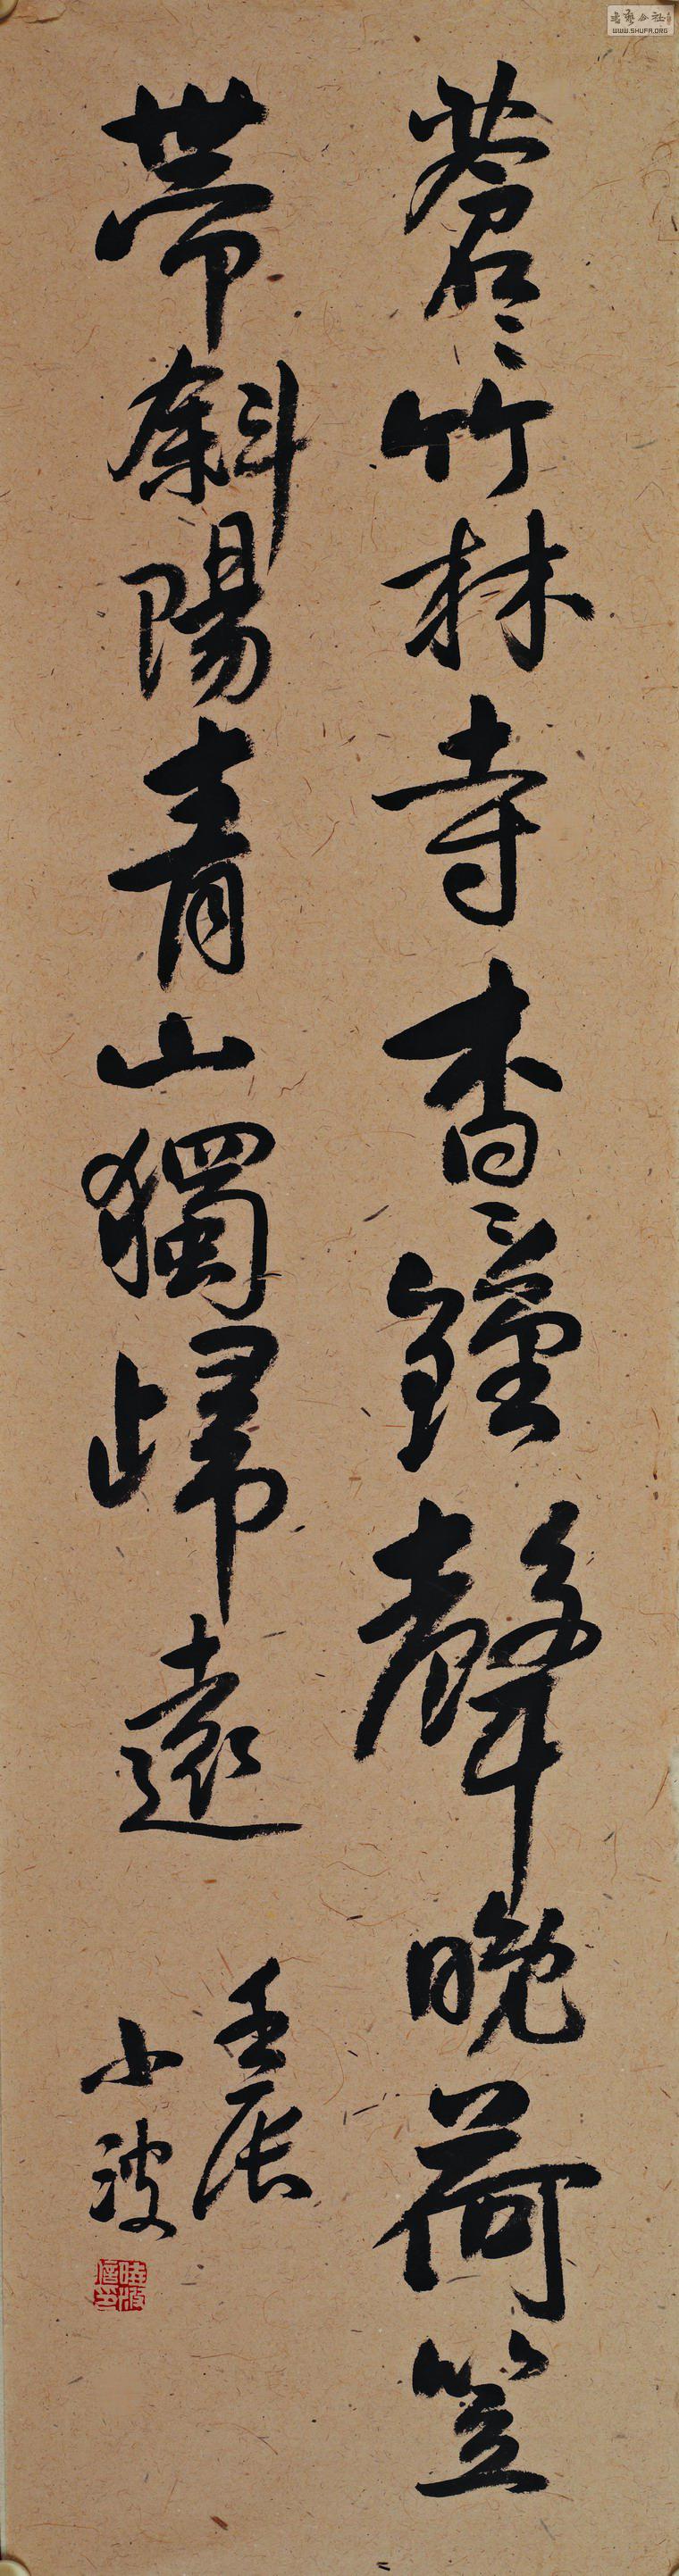 蒼〻竹林寺杳〻鐘聲晚荷笠
帶斜陽青山獨歸遠
壬辰
小波
WWW.SHUFA.ORG